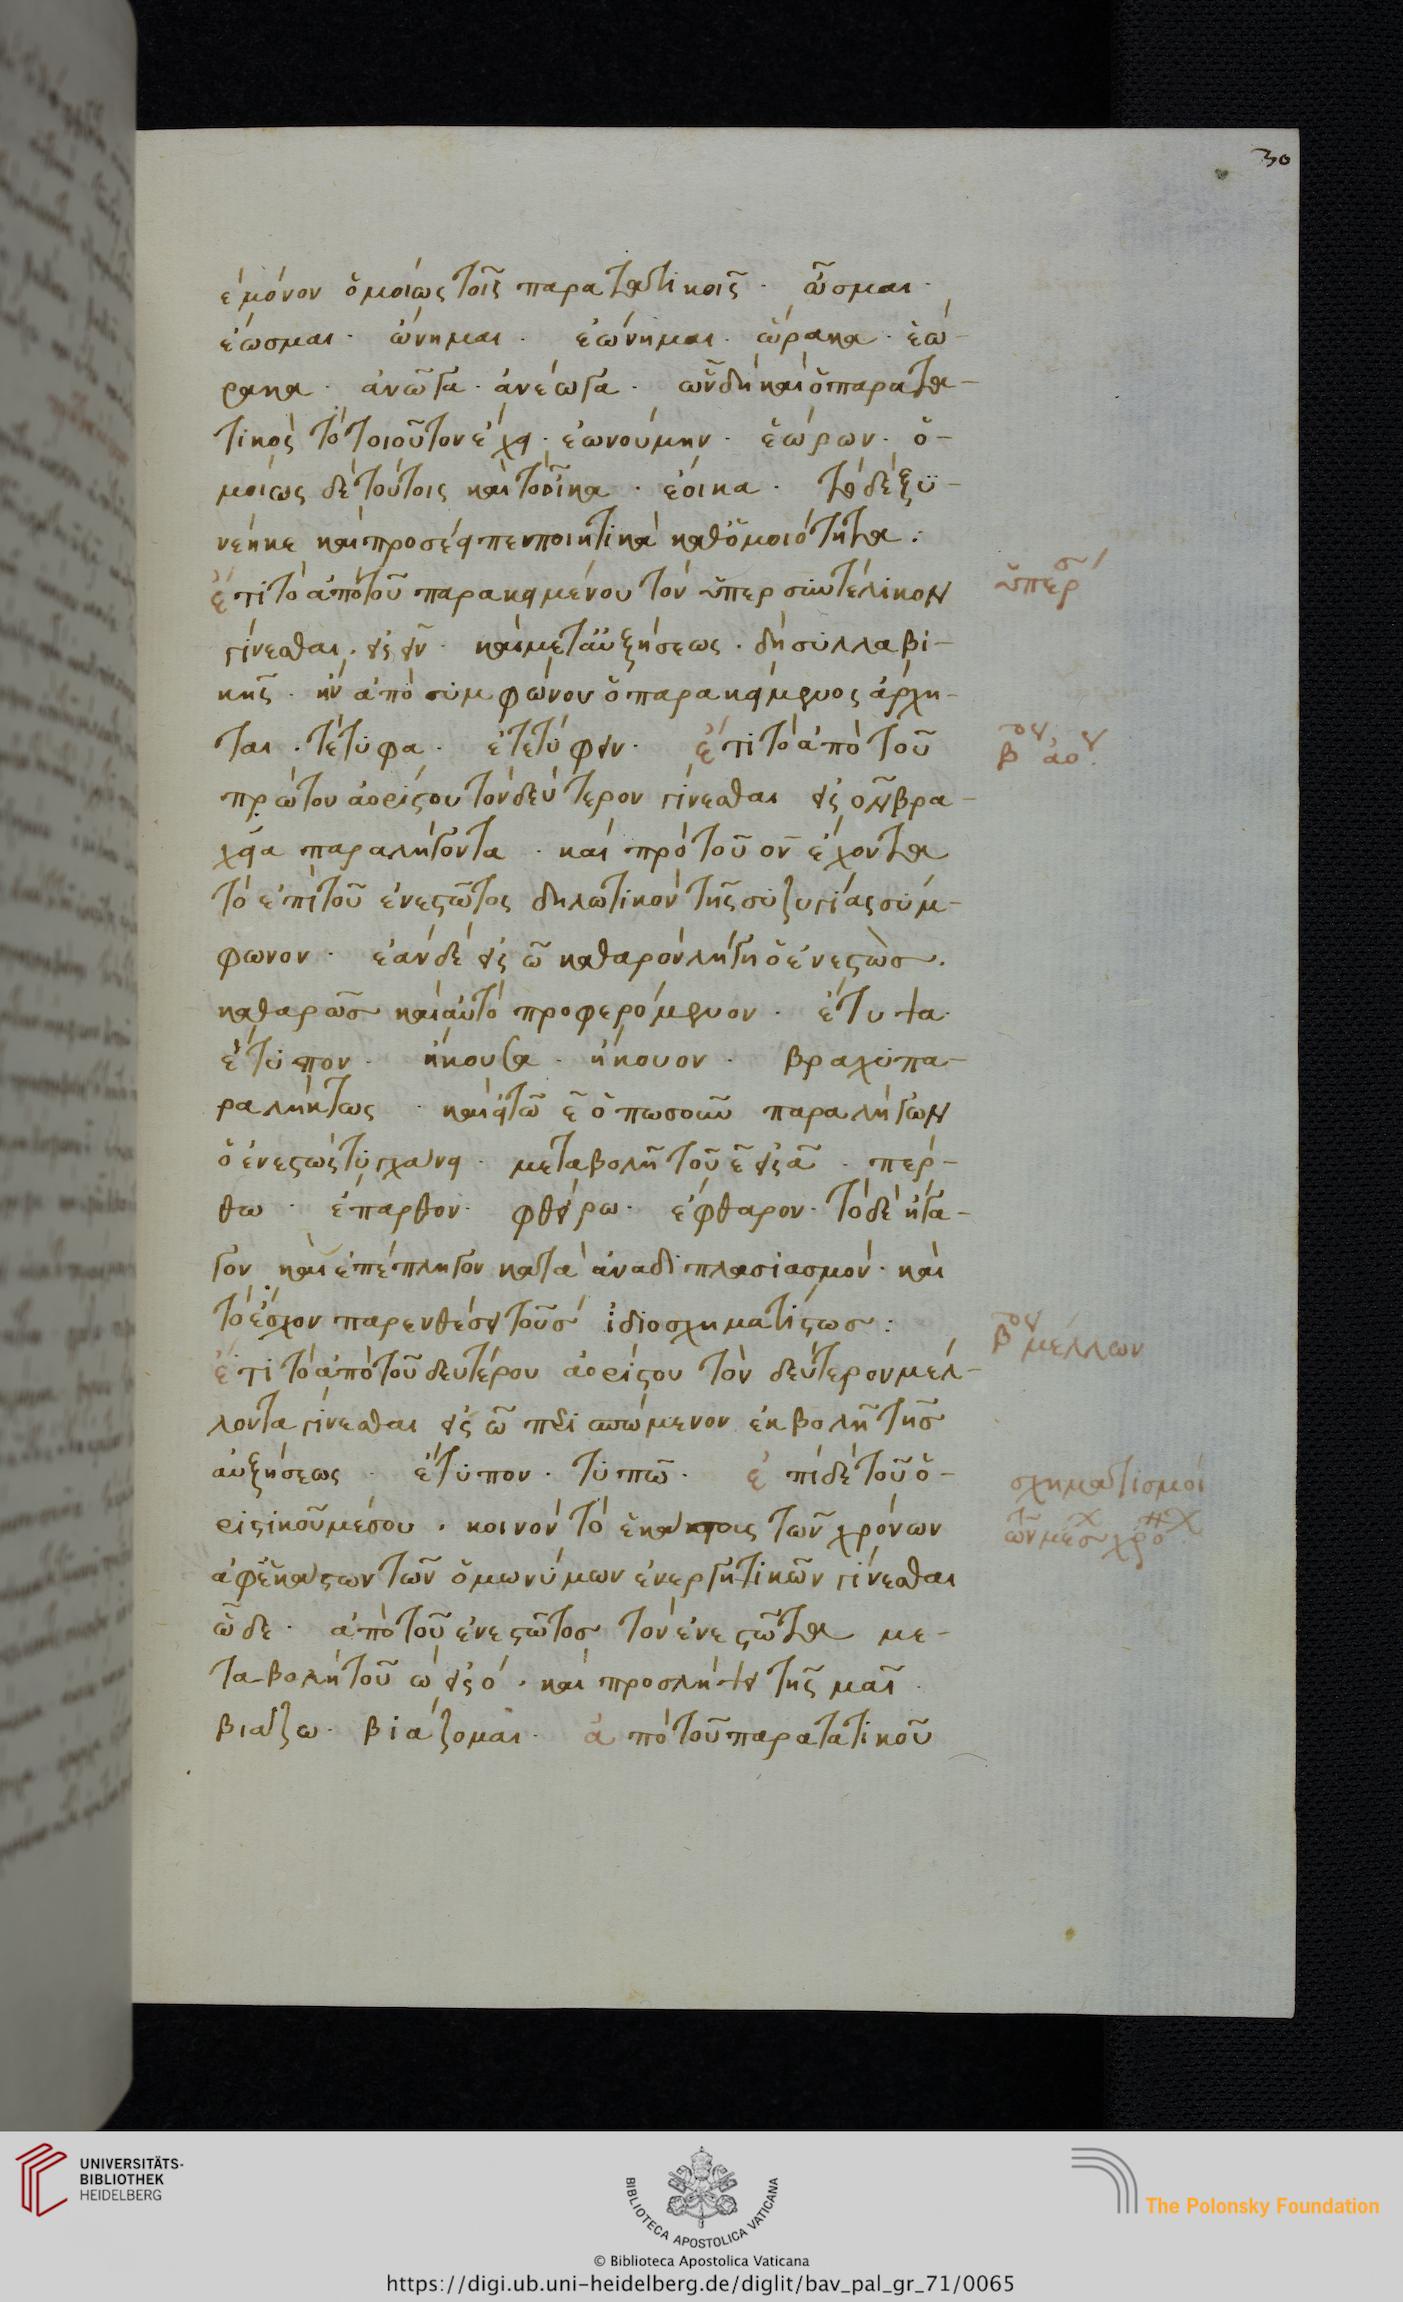 30
ἐ μόνον ὁμοίως τοῖς παρατατικοῖς · ὦσμαι ·
ἔωσμαι · ὤνημαι · ἐώνημαι · ὥρακα · ἑώ-
ρακα · ἀνῶγα · ἀνέωγα · ὧν δὴ καὶ ὁ παρατα-
τικὸς τὸ τοιοῦτον ἔχει · ἐωνούμην · ἑώρων · ὁ-
μοίως δὲ τούτοις καὶ τὸ οἶκα · ἔοικα · τὰ δὲ ξυ-
νέηκε καὶ προσέειπεν ποιητικὰ καθ' ὁμοιότητα :
ἔτι τὸ ἀπὸ τοῦ παρακειμένου τὸν ὑπερσυντέλικον ὑπερσ
γίνεσθαι · εἰς ειν · καὶ μετ' αὐξήσεως · δὴ συλλαβι-
κῆς · ἢν ἀπὸ συμφώνου ὁ παρακείμενος ἄρχη-
ται · τέτυφα · ἐτετύφειν · ἔτι τὸ ἀπὸ τοῦ β ἀο
πρώτου ἀορίστου τὸν δεύτερον γίνεσθαι εἰς ον βρα-
χεῖα παραλήγοντα · καὶ πρὸ τοῦ ον ἔχοντα
τὸ ἐπὶ τοῦ ἐνεστῶτος δηλωτικὸν τῆς συζυγίας σύμ-
φωνον · ἐὰν δὲ εἰς ω καθαρὸν λήγη ὁ ἐνεστὼς ·
καθαρῶς καὶ αὐτὸ προφερόμενον · ἔτυψα ·
ἔτυπον · ἤκουσα · ἤκουον · βραχυπα-
ραλήκτως · καὶ εἰ τῶ ε ὁπωσοῦν παραλήγων
ὁ ἐνεστὼς τύγχανει · μεταβολῆ τοῦ ε εἰς α · πέρ-
θω · ἔπαρθον · φθείρω · ἔφθαρον · τὸ δὲ ἤγα-
γον καὶ ἐπέπληγον κατὰ ἀναδιπλασιασμὸν · καὶ
τὸ ἔσχον παρενθέσει τοῦ σ ἰδιοσχηματίστως :
ἔτι τὸ ἀπὸ τοῦ δευτέρου ἀορίστου τὸν δεύτερον μέλ- β μέλλων
λοντα γίνεσθαι εἰς ω περισπώμενον ἐκβολῆ τῆς
αὐξήσεως · ἔτυπον · τυπῶ · ἐπὶ δὲ τοῦ ὁ- σχηματισμοὶ
ριστικοῦ μέσου · κοινὸν τὸ ἕκαστοις τῶν χρόνων τῶν μέσ χρο
ἀφ' ἑκάστων τῶν ὁμωνύμων ἐνεργητικῶν γίνεσθαι
ὧδε · ἀπὸ τοῦ ἐνεστῶτος τὸν ἐνεστῶτα με-
ταβολὴ τοῦ ω εἰς ο · καὶ προσλήψει τῆς μαι ·
βιάζω · βιάζομαι · ἀπὸ τοῦ παρατατικοῦ
UNIVERSITÄTS-
BIBLIOTHEK
HEIDELBERG
BIBLIOTECA APOSTOLICA VATICANA
The Polonsky Foundation
© Biblioteca Apostolica Vaticana
https://digi.ub.uni-heidelberg.de/diglit/bav_pal_gr_71/0065